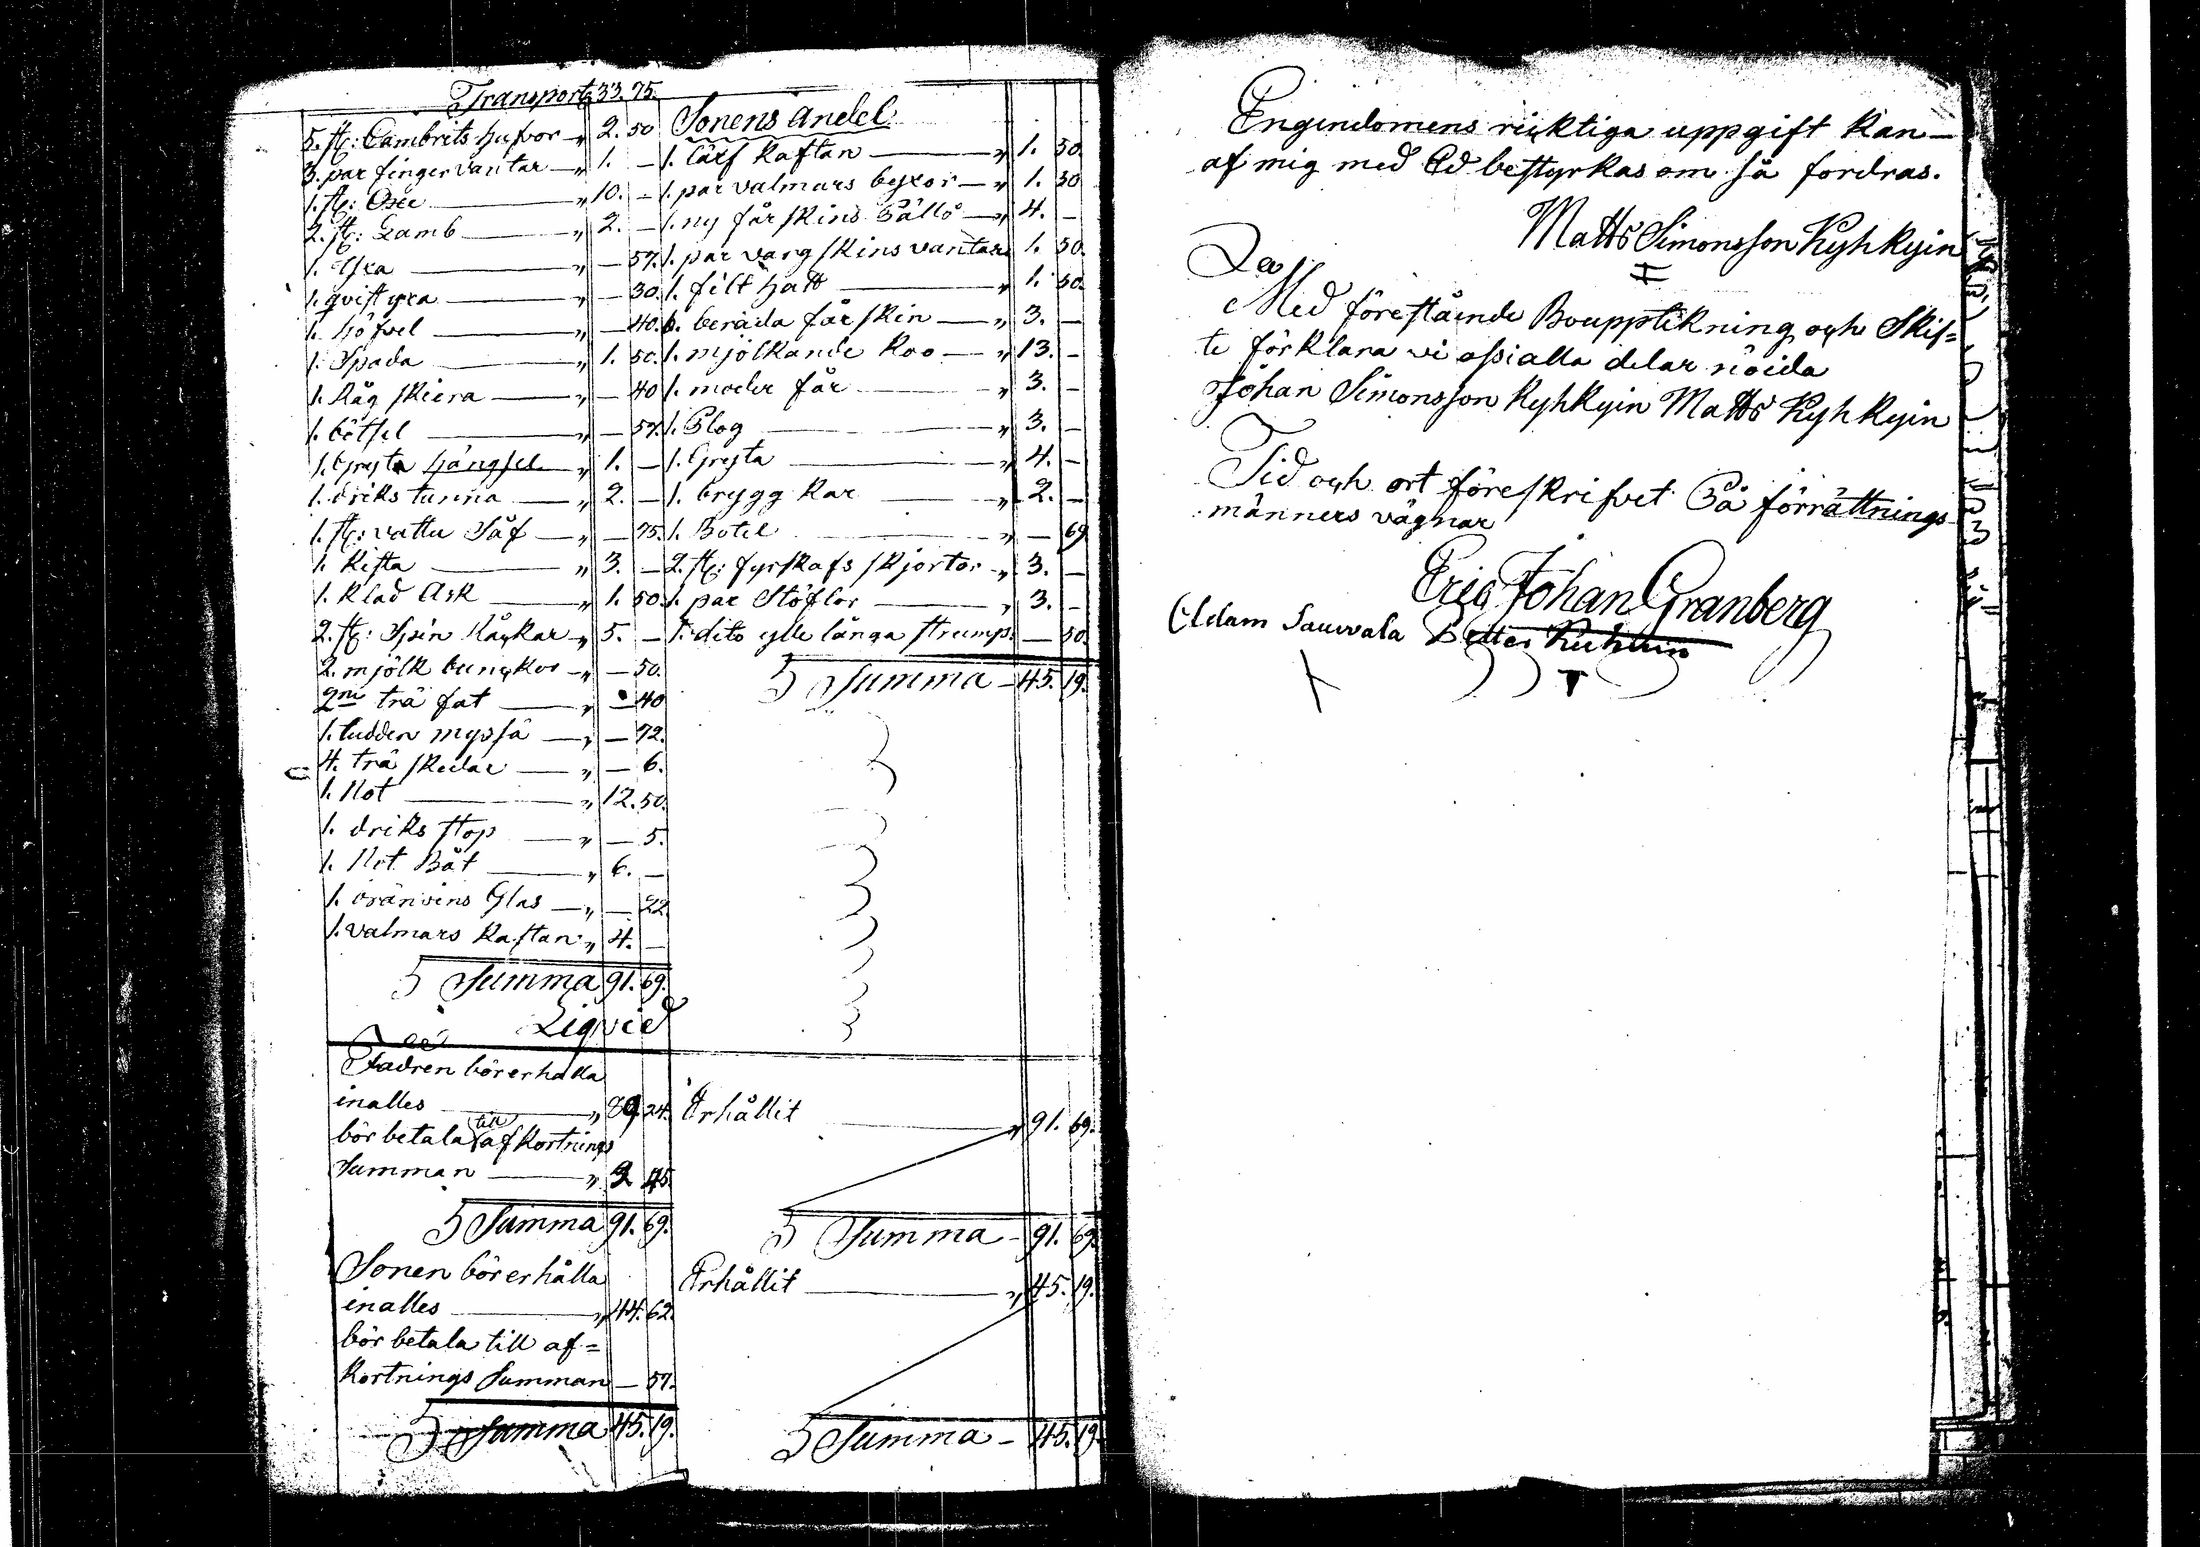 Transport 33. 75.
5. st: Cambrits hufvor " 2. 50
3. par finger vantar " 1. —
1. st: Oxe " 10. —
2. st: Lamb " 2. —
1. yxa " — 57.
1. qvistyxa " — 30.
1. höfvel " — 40.
1. Spada " 1. 50.
1. Råg skiera " — 40
1. bötsel " — 57.
1. Gryta hängsel " 1. —
1. driks tunna " 2. —
1. st: vattu Såf " — 75.
1. Kista " 3. —
1. Klad Ask " 1. 50.
2. st: Spin Råckar " 5. —
2. mjölk bunckor " — 50.
2ne trä fat " — 40
1. ludden myssä " — 72.
4. trä skedar " — 6.
1. Not " 12. 50.
1. driks stop " — 5.
1. Not Båt " 6. —
1. bränvins Glas " — 22
1. valmars Kaftan " 4. —
Summa 91. 69.
Sonens andel
1. lärf Kaftan " 1. 50.
1. par valmars byxor " 1. 50
1. ny fårskins Pälls " 4. —
1. par vargskins vantar " 1. 50.
1. filt hatt " 1. 50.
6. beräda fårskin " 3. —
1. mjölkande Koo " 13. —
1. moder får " 3. —
1. Plog " 3. —
1. Gryta " 4. —
1. brygg Kar " 2. —
1. Botel " — 69
2. st: fyrskafs skjortor " 3. —
1. par Stöflor " 3. —
1. dito ylle långa strump. — 50.
Summa 45. 19.
Liqvid
Fadren bör erhålla
inalles " 89 24. Erhållit " 91. 69.
bör betala till afkortnings
Summan " 2 45
Summa 91. 69. Summa 91. 69.
Sonen bör erhålla Erhållit " 45. 19.
inalles " 44. 62.
bör betala till af=
kortnings Summan — 57.
Summa 45. 19. Summa 45. 19.
Engendomens ricktiga uppgift kan
af mig med Ed bestyrkas om så fordras.
Matts Simonsson Kyhkyin
Med förestående Bouppttkning och Skif=
te förklara vi oss i alla delar nöida
Johan Simonsson Kyhkyin Matts Kyhkyin
Tid och ort föreskrifvet På förrättnings
männers vägnar
Eric Johan Granberg
Adam Sauvala Petter